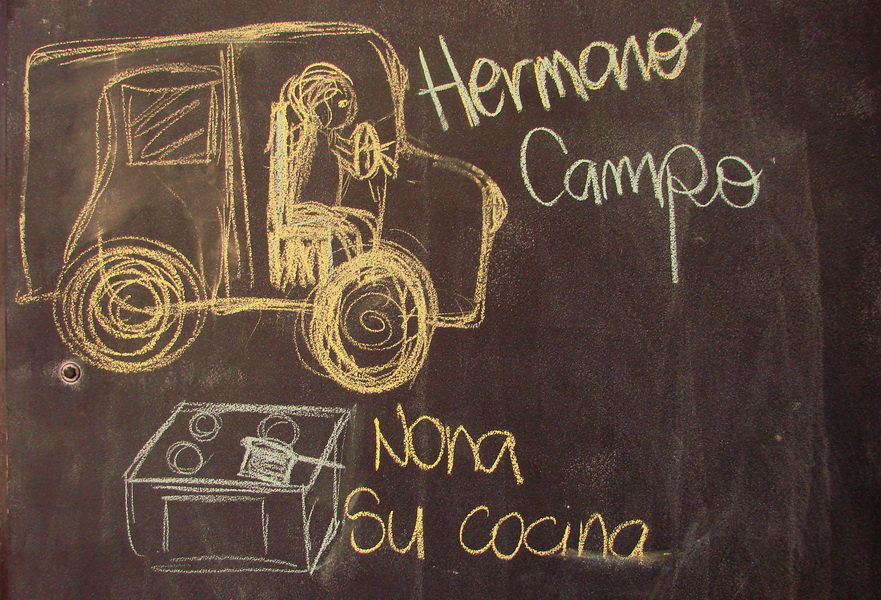 Hermano
Campo
Nona
Su cocina